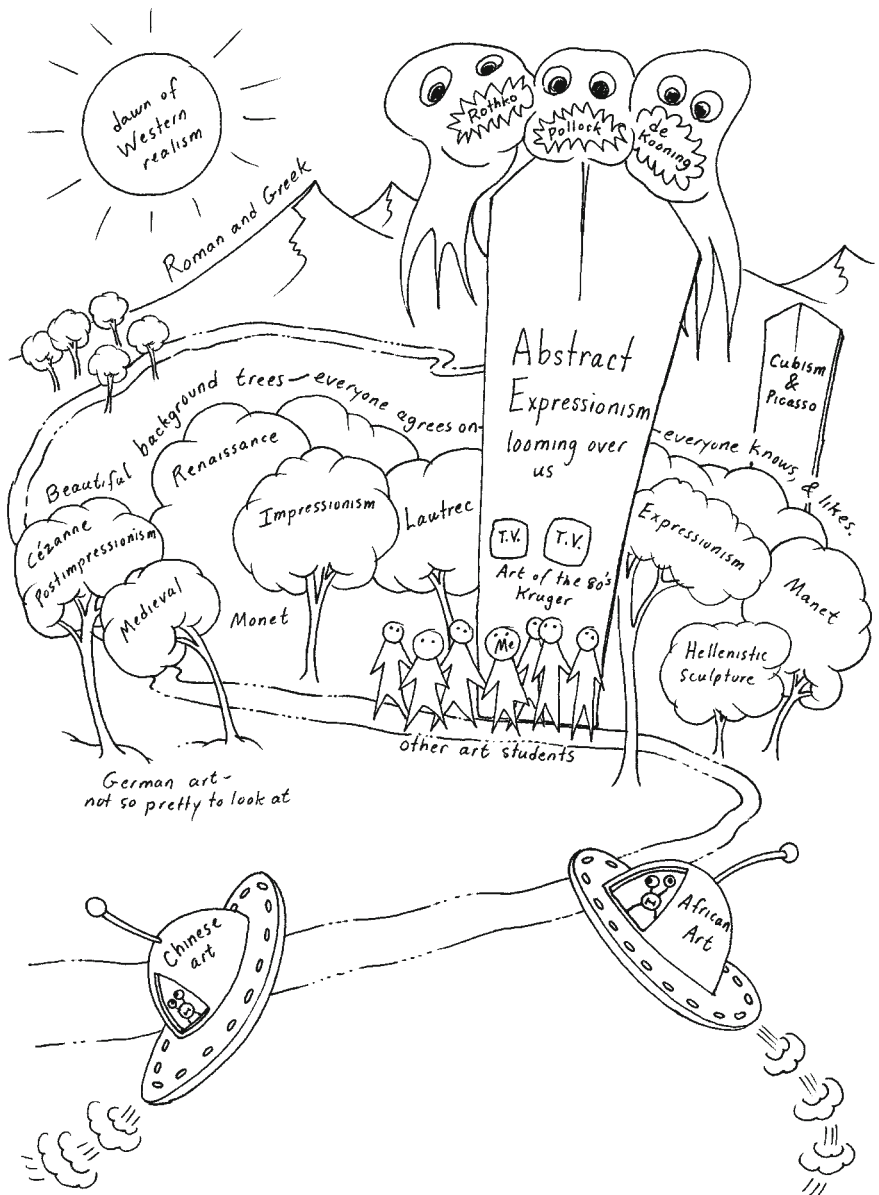 dawn of
Western
realism
Roman and Greek
Rothko
Pollock
de
Kooning
Abstract
Expressionism
looming over
us
Cubism
&
Picasso
Beautiful background trees – everyone agrees on – everyone knows, & likes.
Renaissance
Impressionism
Lautrec
Cézanne
Postimpressionism
Medieval
Monet
T.V.
T.V.
Art of the 80's
Kruger
Expressionism
Manet
Hellenistic
sculpture
Me
other art students
German art –
not so pretty to look at
Chinese
art
African
Art